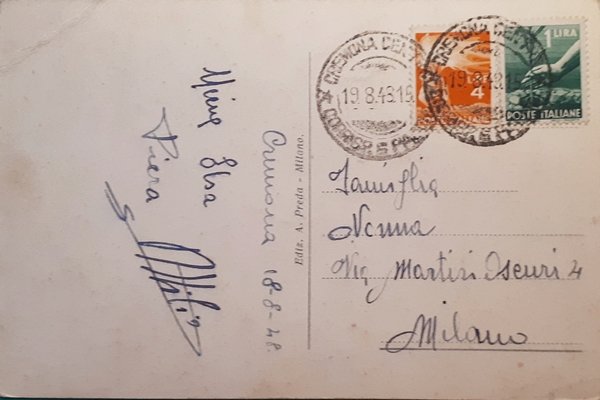 CREMONA CENTRO
19.8.48.15
CORRISP. E PACCHI
4
CREMONA CENTRO
19.8.48.15
1 LIRA
POSTE ITALIANE
Famiglia
Nenna
Via Martiri Oscuri 4
Milano
Ediz. A. Preda - Milano.
Cremona 18-8-48.
Elsa
Piera